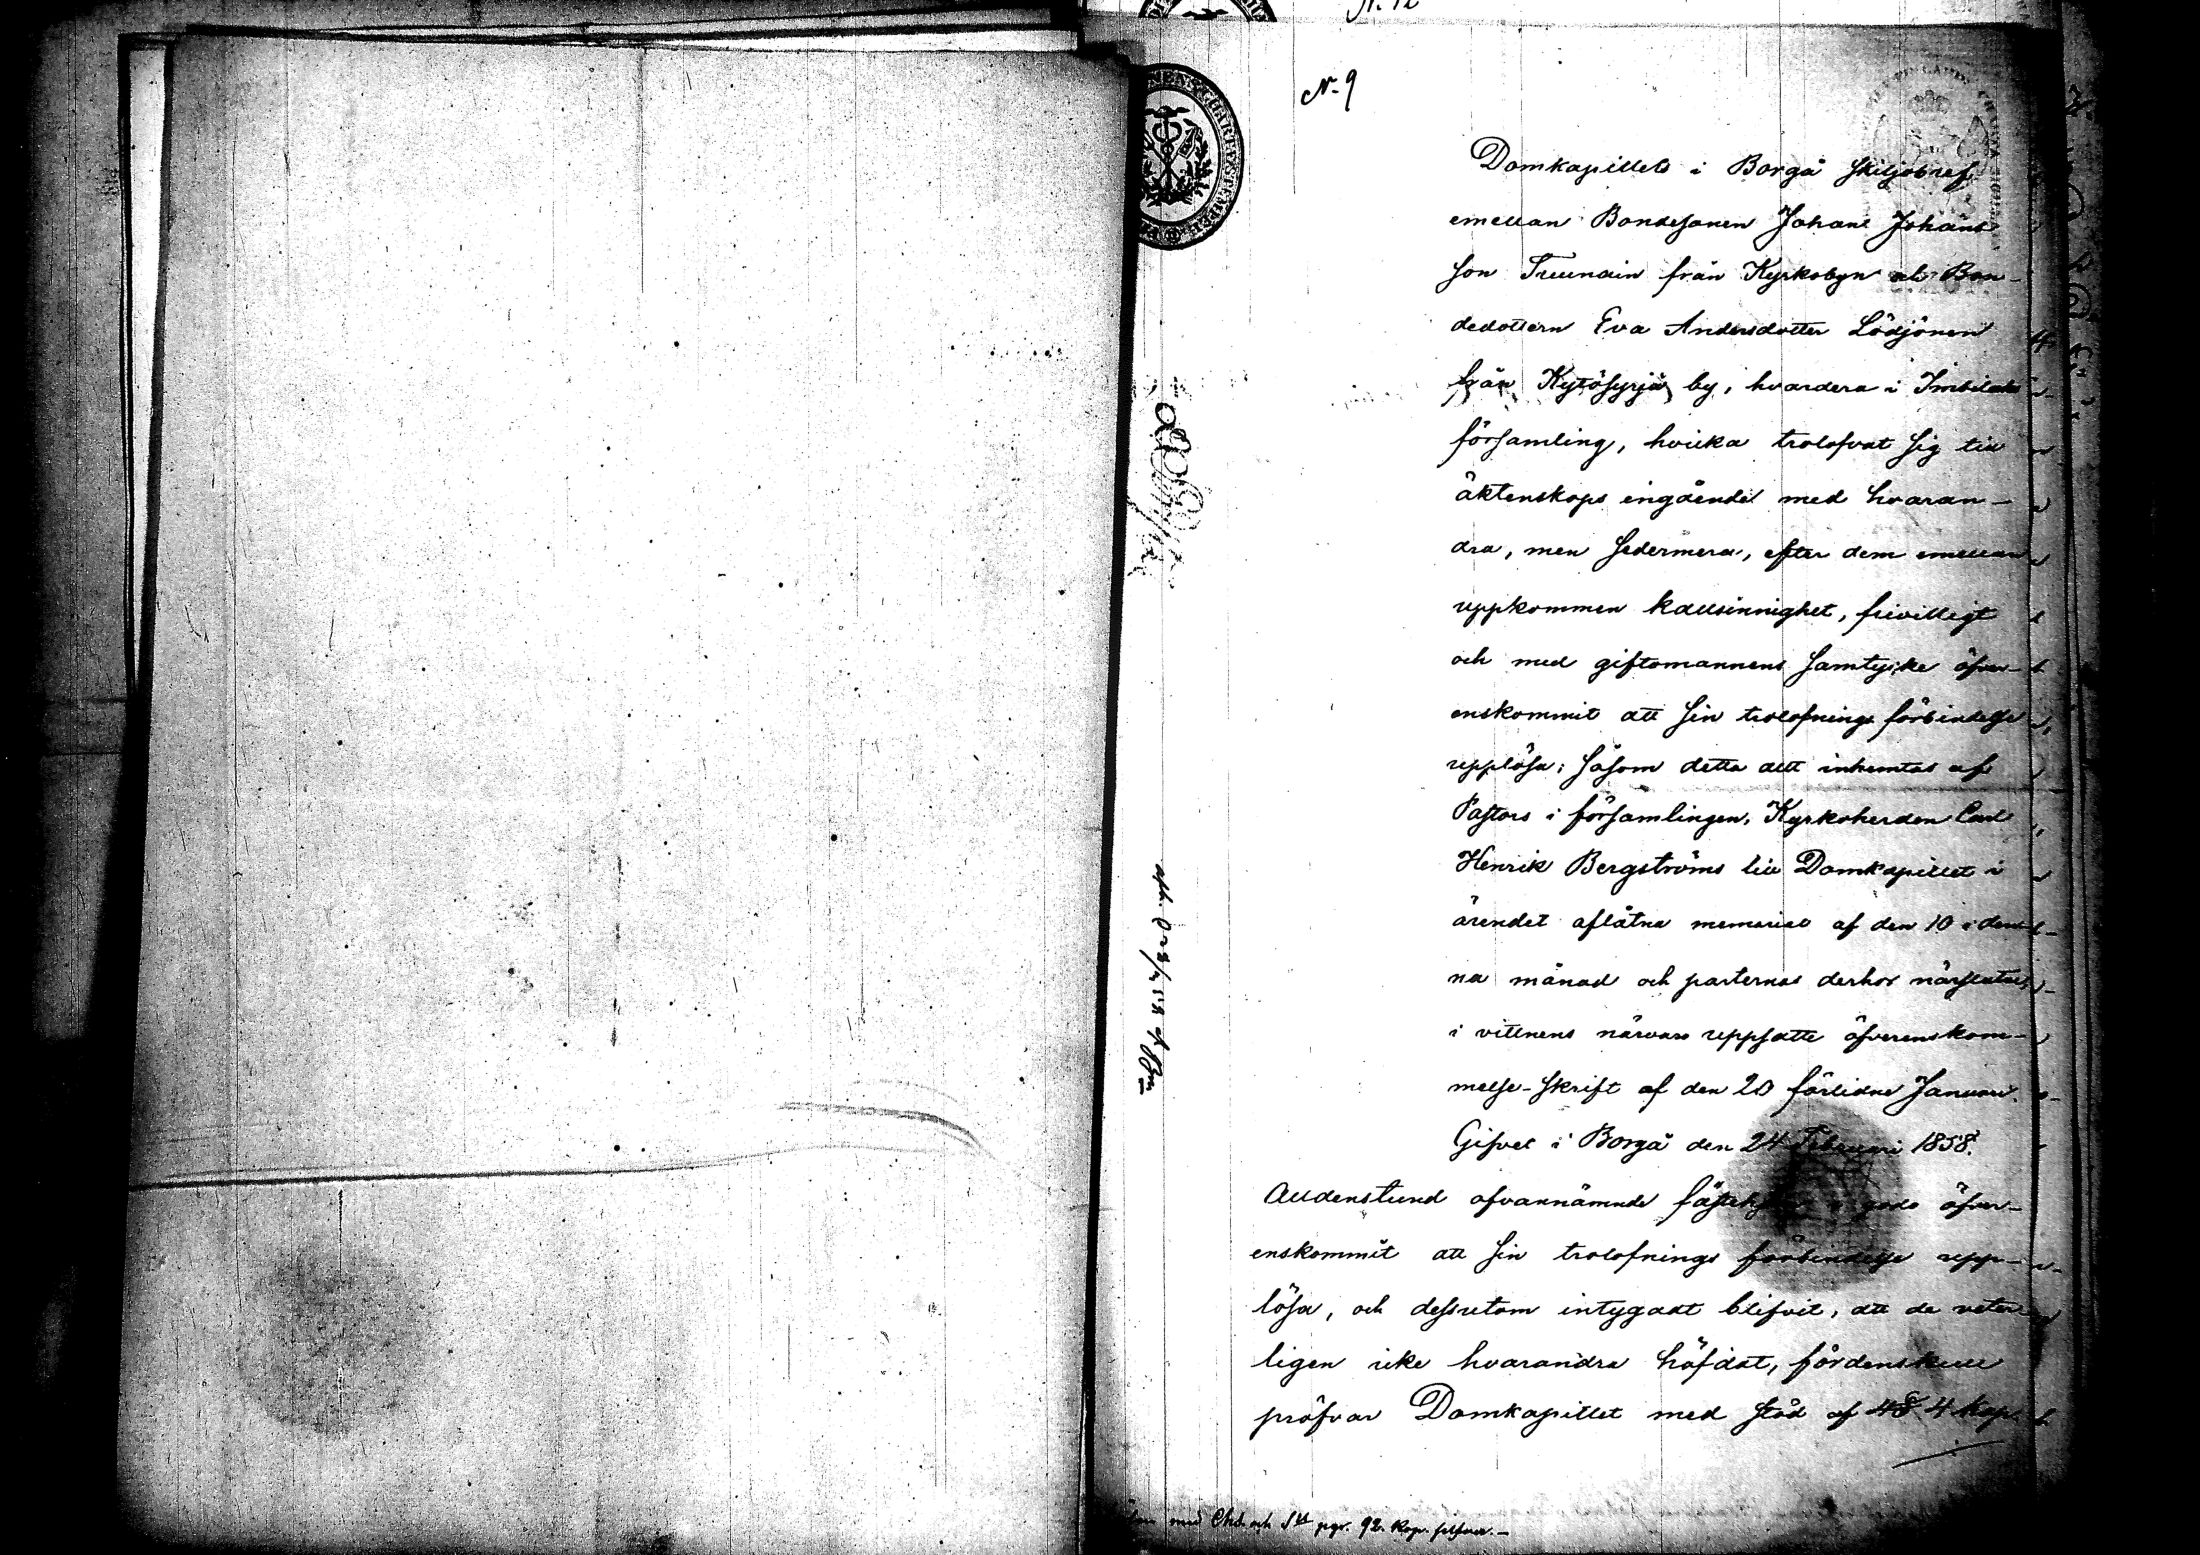 N. 12
N. 9
Domkapillets i Borgå skiljobref
emellan Bondesonen Johan Johans
son from Kyrkobyn Bon-
dedottern Eva Andersdotter Lödjönen
från Kytösyrjä by, hvardera i Imbilaks
församling, hvilka trolofvat sig till
äktenskaps ingående med hvaran-
dra, men sedermera, efter dem emellan
uppkommen kallsinnighet, frivilligt
och med giftomannens samtycke öfver-
enskommit att sin trolofnings förbindelse
upplösa; såsom detta allt inhemtas af
Pastors i församlingen, Kyrkoherden Carl
Henrik Bergströms till Domkapitlet i
ärendet aflåtna memorial af den 10 i den-
na månad och parternas derhos närslutne,
i vittnens närvaro uppsatte öfverenskom-
melse-skrift af den 20 förlidne Januari.
Gifvet i Borgå den 24 Februari 1858.
Alldenstund ofvannämnde i godo öfver-
enskommit att sin trolofnings förbindelse upp-
lösa, och dessutom intygadt blifvit, att de veter-
ligen icke hvarandra häfdat, fördenskull
pröfvar Domkapitlet med stöd af 4 kap
med Chch och pgr. 92. kop. silfver.-